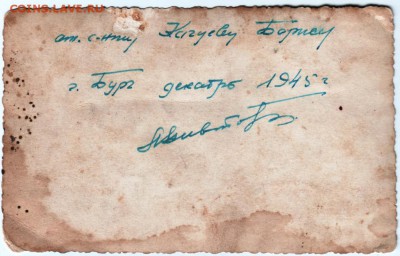 COINS.LAVE.RU
ст. с-нту Качуеву Борису
г. Бург декабрь 1945 г